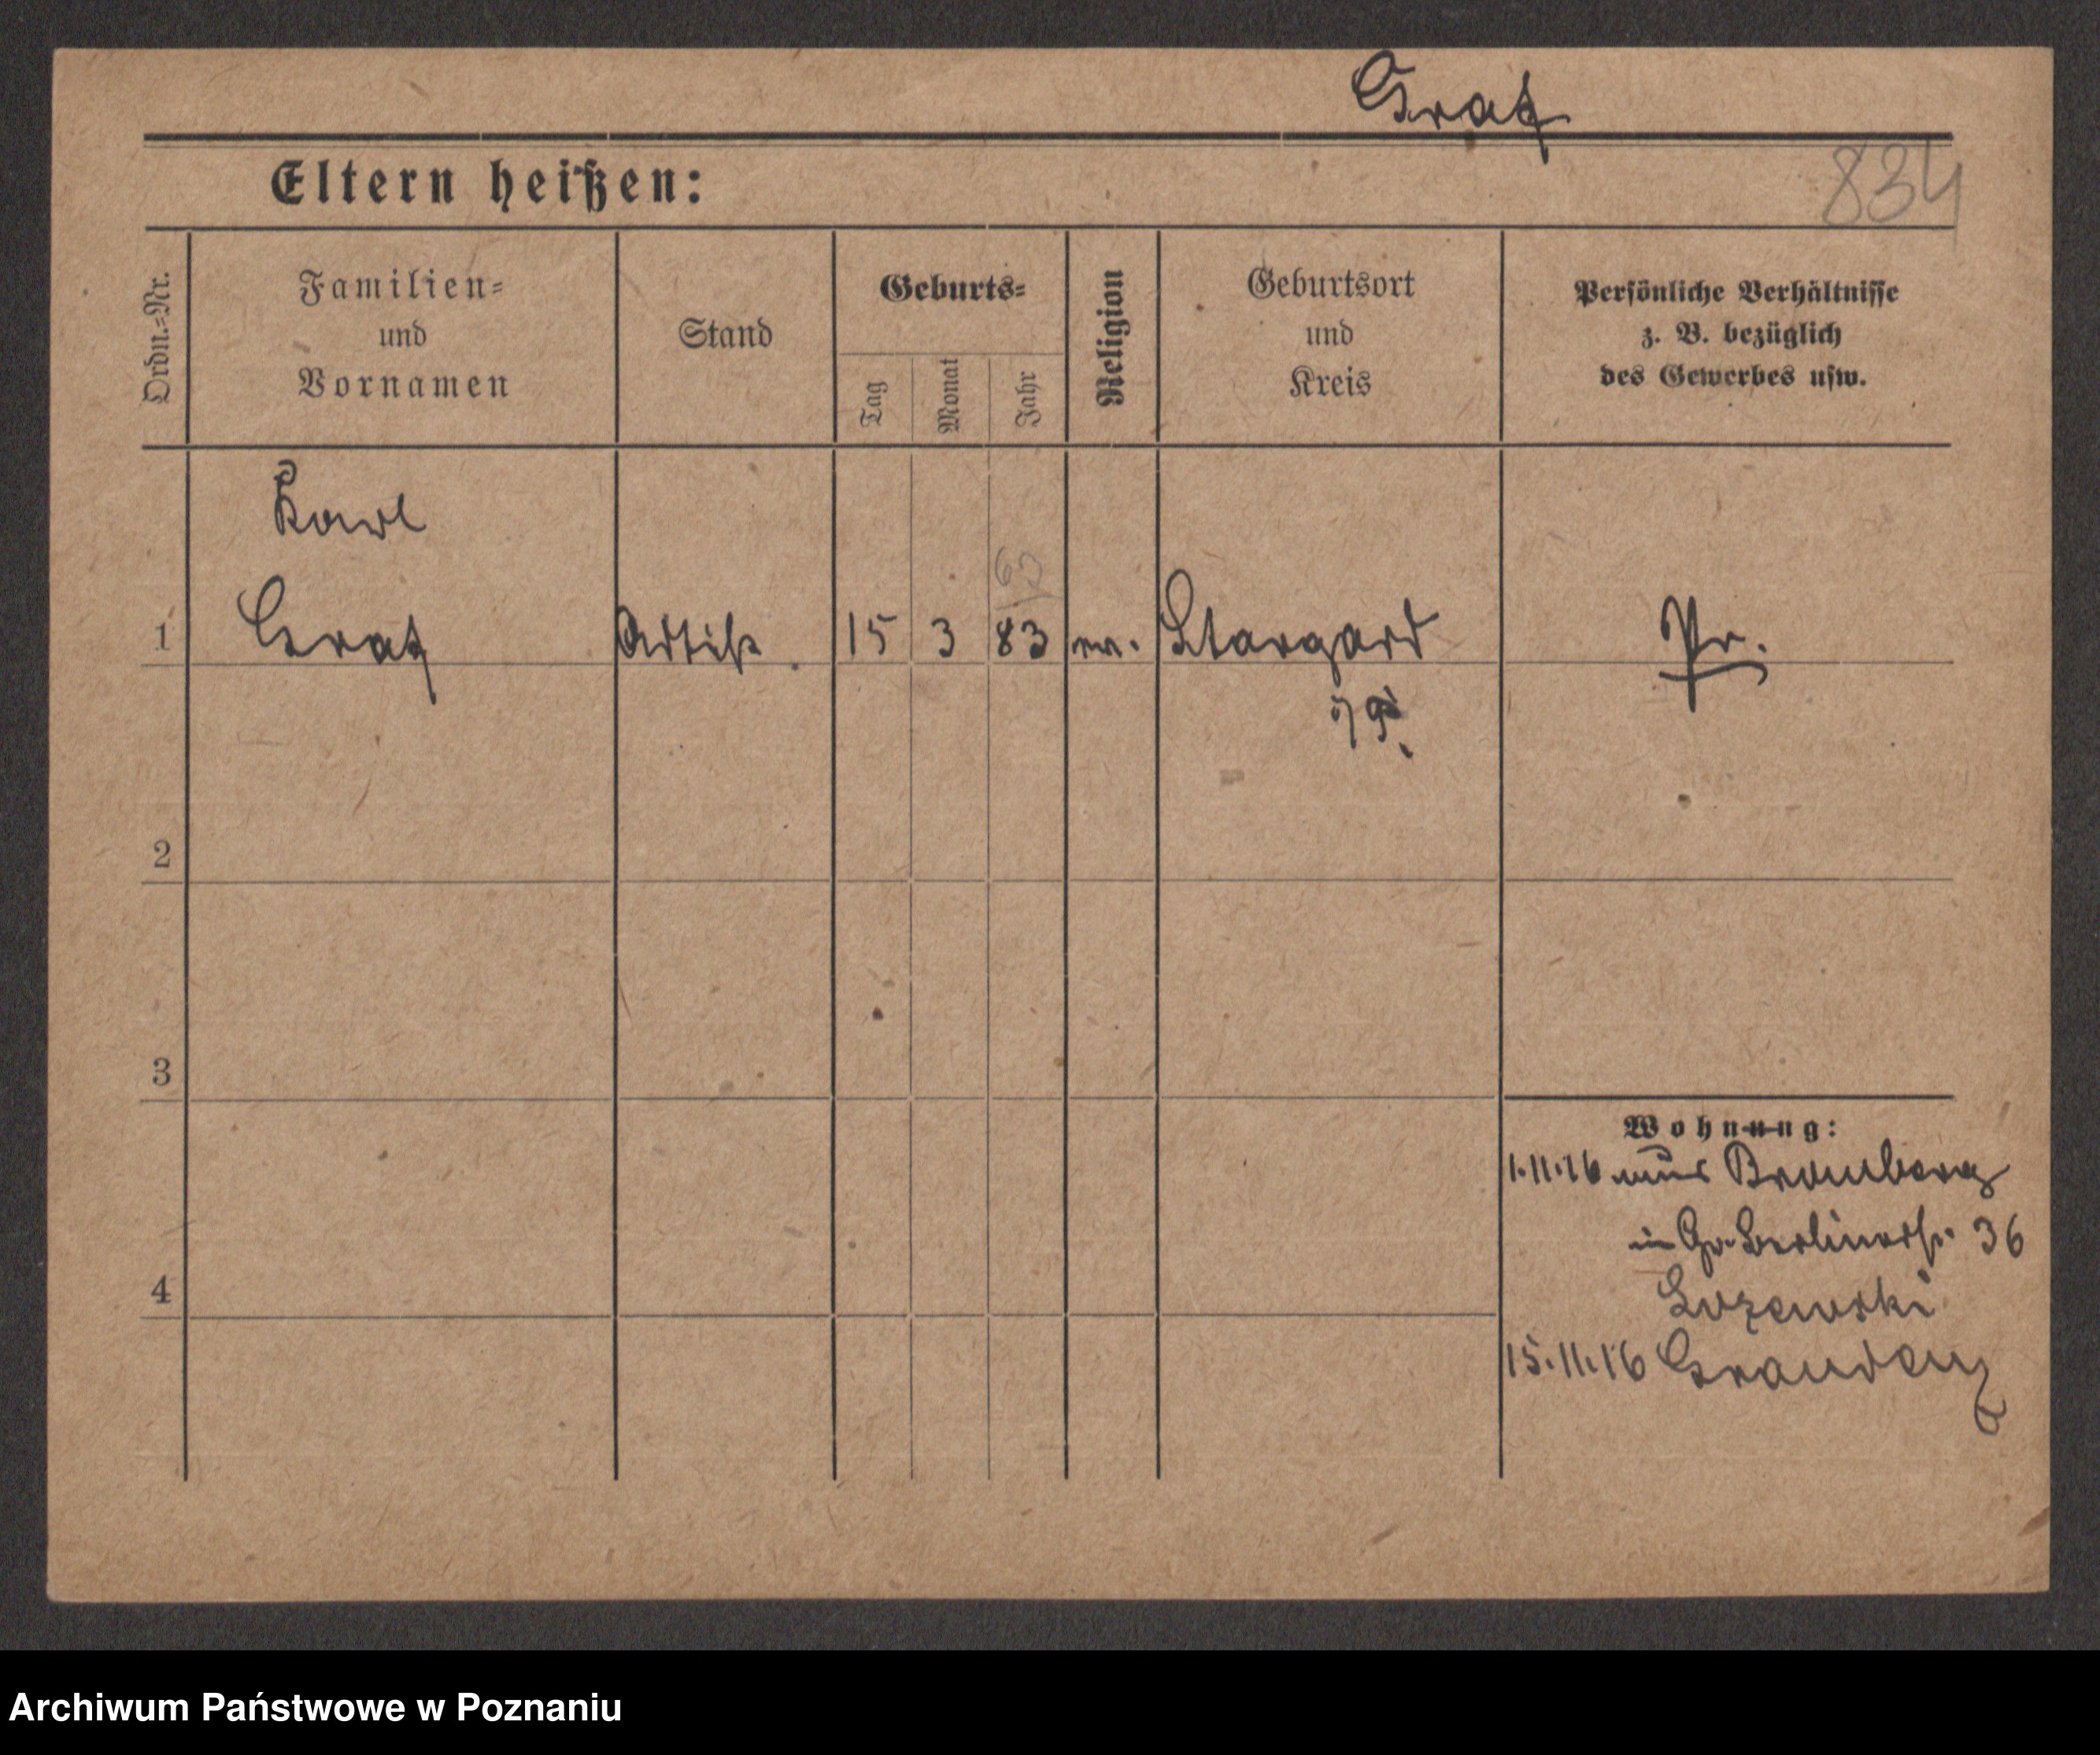 Graf
834
Eltern heißen:
Ordn.-Nr.
Familien-
und
Vornamen
Stand
Geburts-
Tag
Monat
Jahr
Religion
Geburtsort
und
Kreis
Persönliche Verhältnisse
z. B. bezüglich
des Gewerbes usw.
Karl
1 Graf Artist 15 3 83 ev. Stargard Pr.
2
3
4
Wohnung:
1.11.16 aus Bromberg
in Gr. Berlinerstr. 36
15.11.16 Graudenz
Archiwum Państwowe w Poznaniu